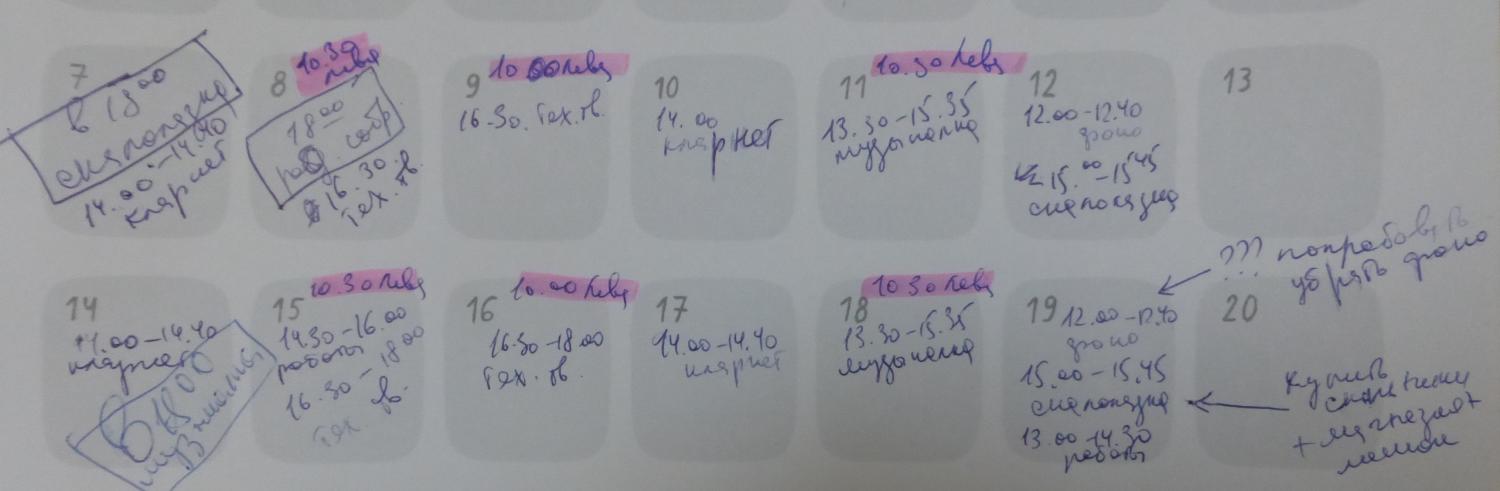 7
в 18 00
скалолазка
14.00-14.40
кларнет
8
10.30
Лева
18 00
род. собр
16.30
тех. тв.
9
10 00 Лева
16-30. Тех. тв.
10
14.00
кларнет
11
10.30 Лева
13.30-15.35
музыкалка
12
12.00-12.40
фоно
15.00-15 45
скалолазка
13
14
14.00-14.40
кларнет
В 18 00
15
10.30 Лева
14.30-16.00
роботы
16.30-18 00
Тех. тв.
16
10.00 Лева
16.30-18.00
Тех. тв.
17
14.00-14.40
кларнет
18
10 30 Лева
13.30-15.35
музыкалка
19
12.00-12.40
фоно
15.00-15.45
скалолазка
13.00-14.30
роботы
20
??? попробовать
убрать фоно
Купить
+ магнезия +
мешок